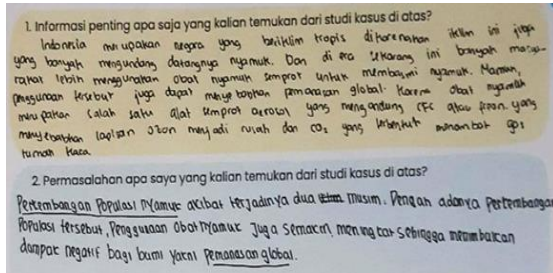 1. Informasi penting apa saja yang kalian temukan dari studi kasus di atas?
Indonesia merupakan negara yang beriklim tropis dikarenakan iklim ini juga
yang banyak mengundang datangnya nyamuk. Dan di era sekarang ini banyak masya-
rakat lebih menggunakan obat nyamuk semprot untuk membasmi nyamuk. Namun,
penggunaan tersebut juga dapat menyebabkan pemanasan global. Karena obat nyamuk
merupakan salah satu alat semprot aerosol yang mengandung CFC atau freon. yang
menyebabkan lapisan ozon menjadi rusak dan CO2 yang terbentuk menambah gas
rumah kaca.
2. Permasalahan apa saya yang kalian temukan dari studi kasus di atas?
Perkembangan Populasi nyamuk akibat terjadinya dua musim. Dengan adanya perkembangan
Populasi tersebut, Penggunaan obat nyamuk Juga semakin meningkat sehingga menimbulkan
dampak negatif bagi bumi yakni Pemanasan global.